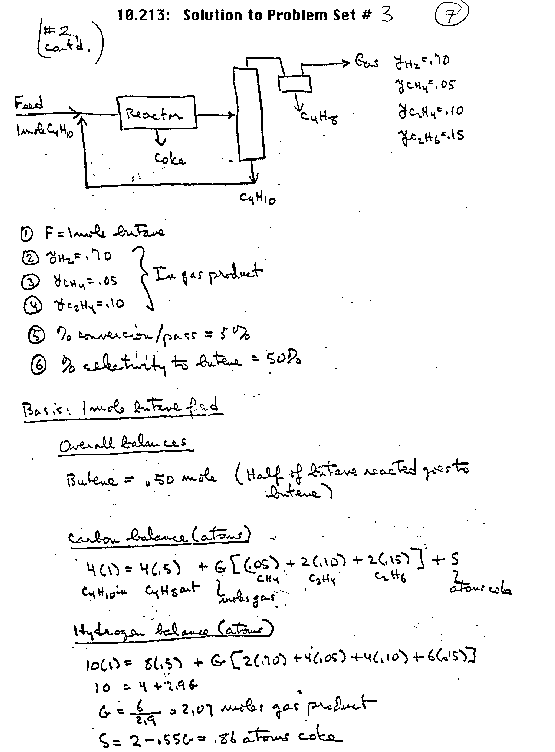 10.213: Solution to Problem Set # 3
7
(#2 cont'd.)
Gas yH2=.70
yCH4=.05
yC2H4=.10
yC2H6=.15
C4H8
Feed
1 mole C4H10
Reactor
Coke
C4H10
① F = 1 mole butane
② yH2 = .70
③ yCH4 = .05
④ yC2H4 = .10
In gas product
⑤ % conversion/pass = 5%
⑥ % selectivity to butene = 50%
Basis: 1 mole butane feed
Overall balances
Butene = .50 mole (Half of butane reacted goes to
butene)
Carbon balance (atoms)
4(1) = 4(.5) + G[(.05) + 2(.10) + 2(.15)] + S
C4H10 in C4H8 out moles gas CH4 C2H4 C2H6 atoms coke
Hydrogen balance (atoms)
10(1) = 8(.5) + G[2(.70) + 4(.05) + 4(.10) + 6(.15)]
10 = 4 + 2.9G
G = 6/2.9 = 2.07 moles gas product
S = 2 - .55G = .86 atoms coke